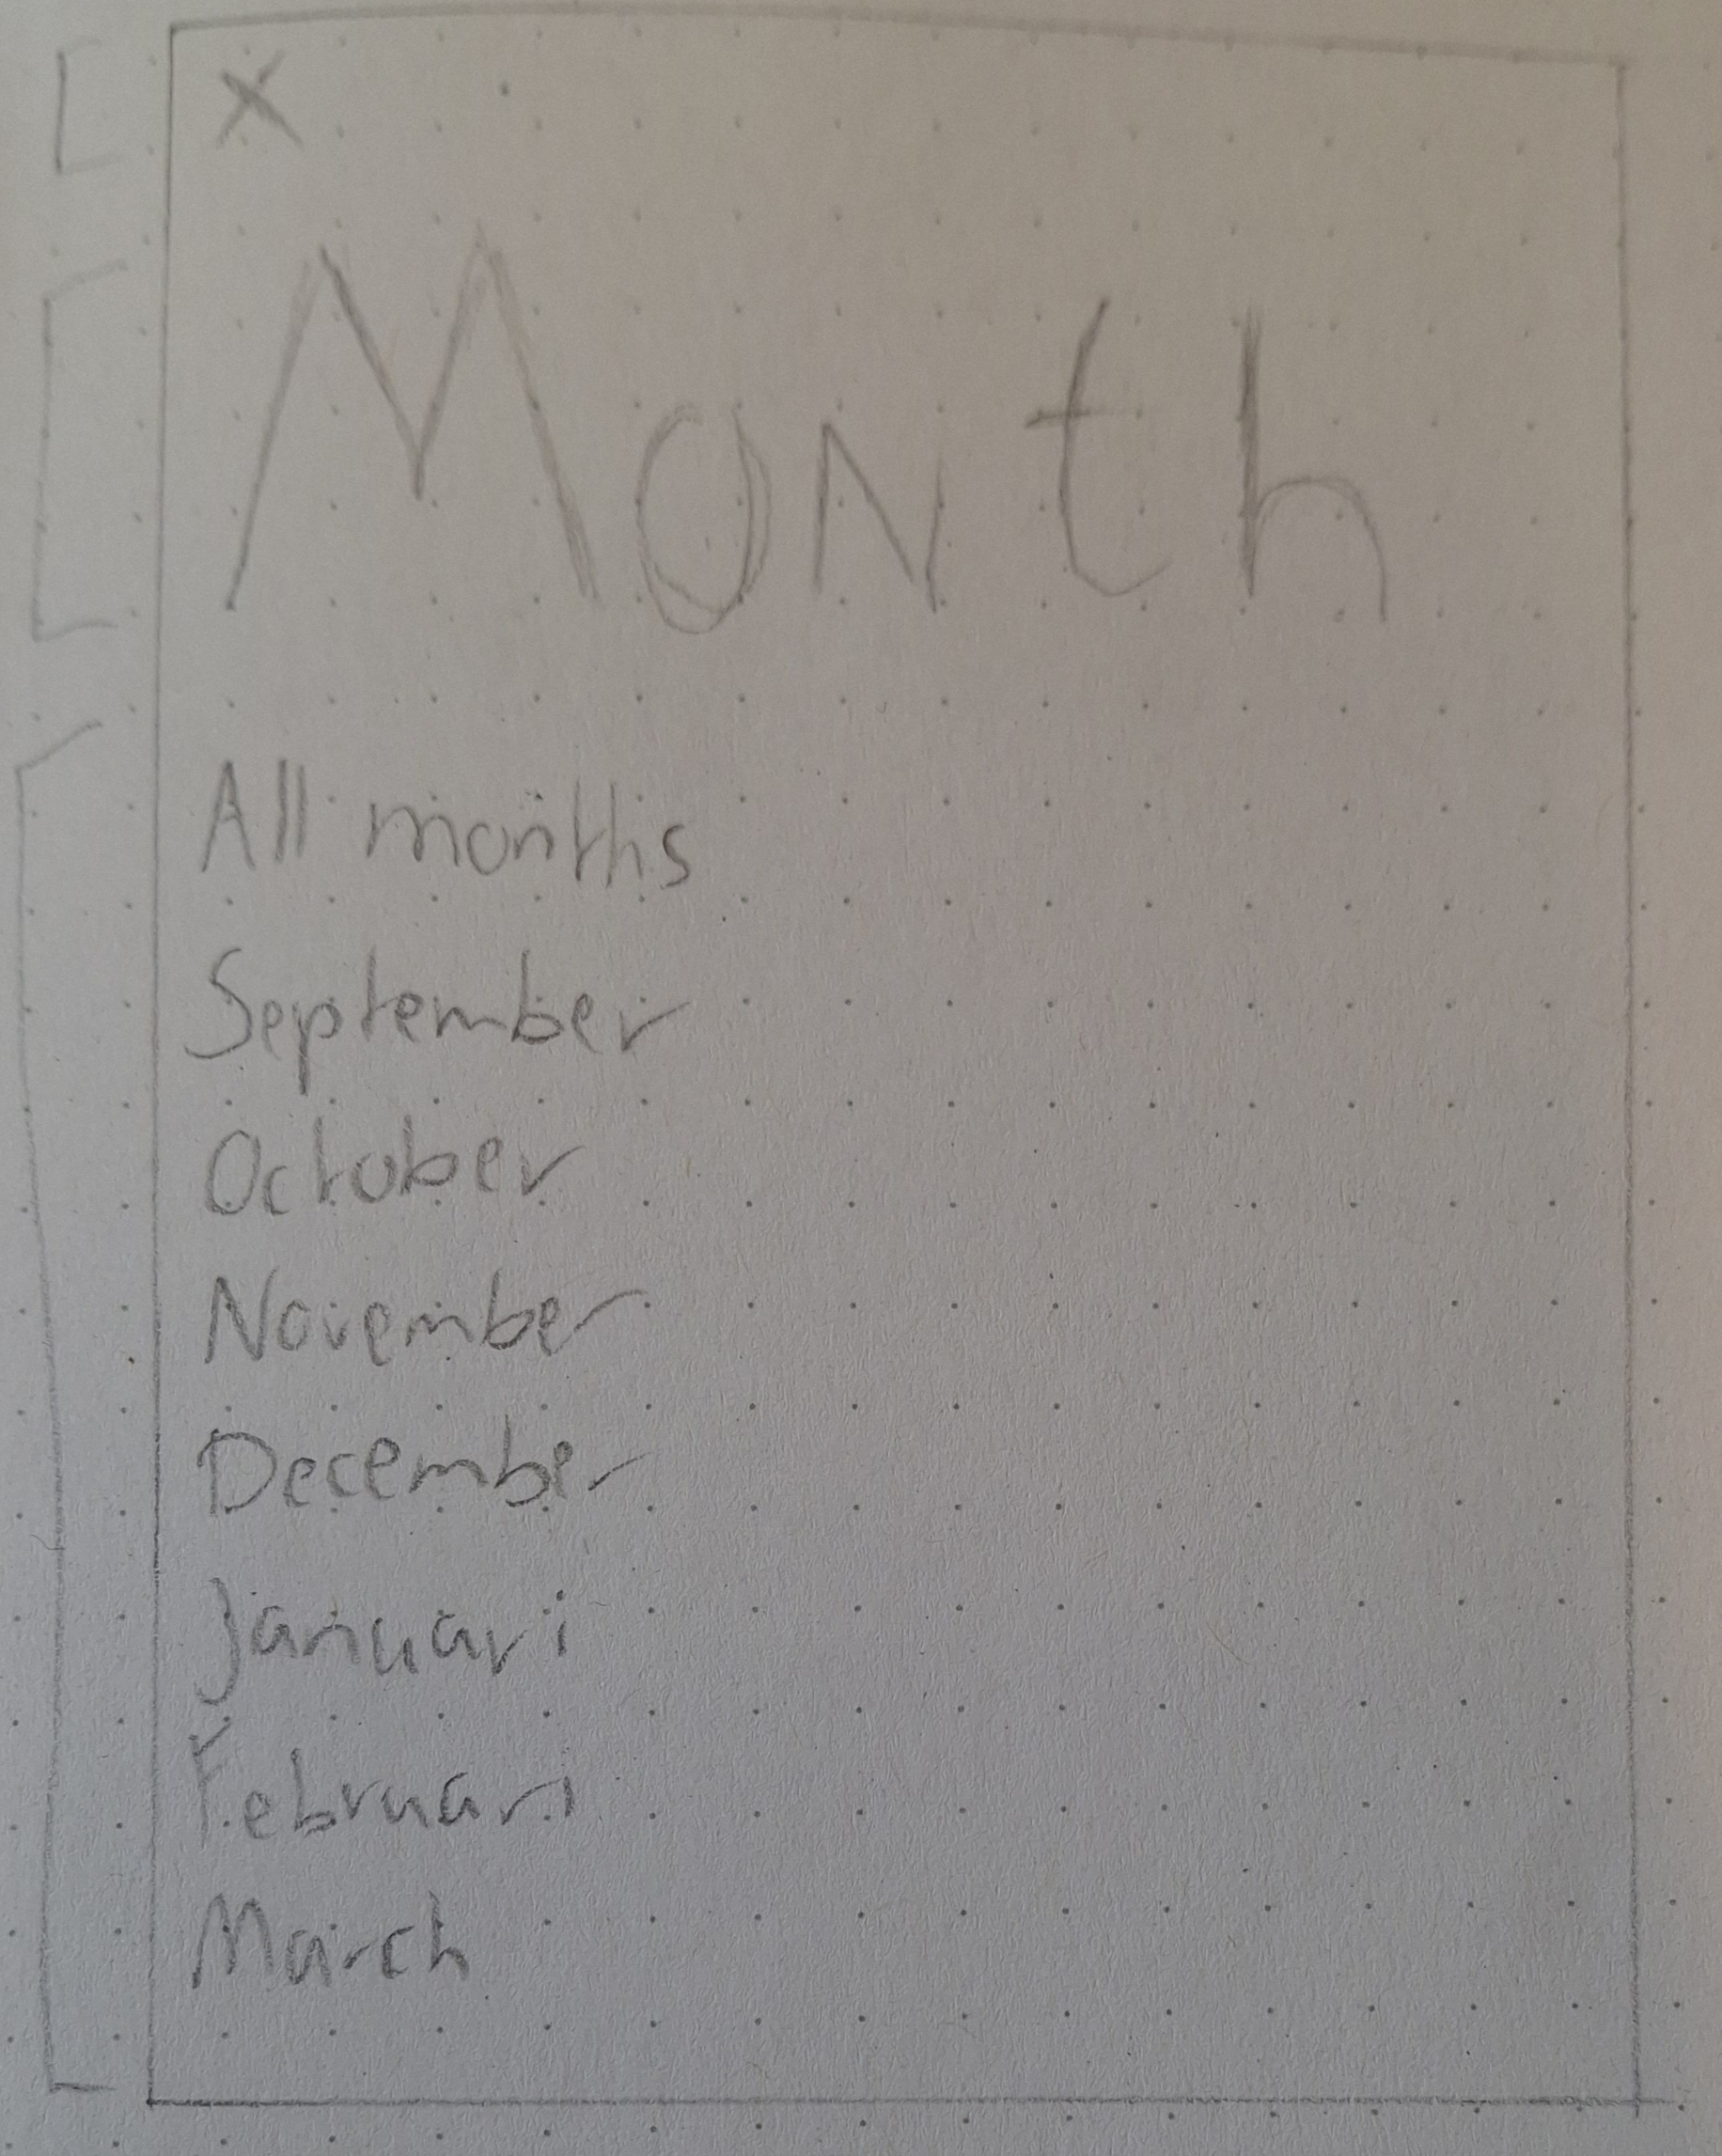 X
Month
All months
September
October
November
December
Januari
Februari
March